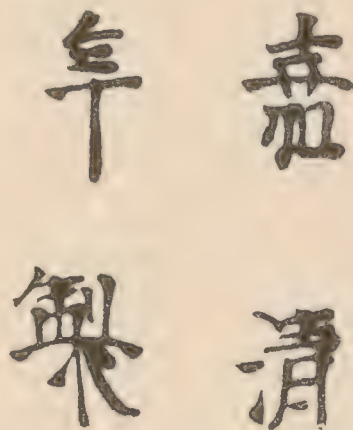 嘉清
年製